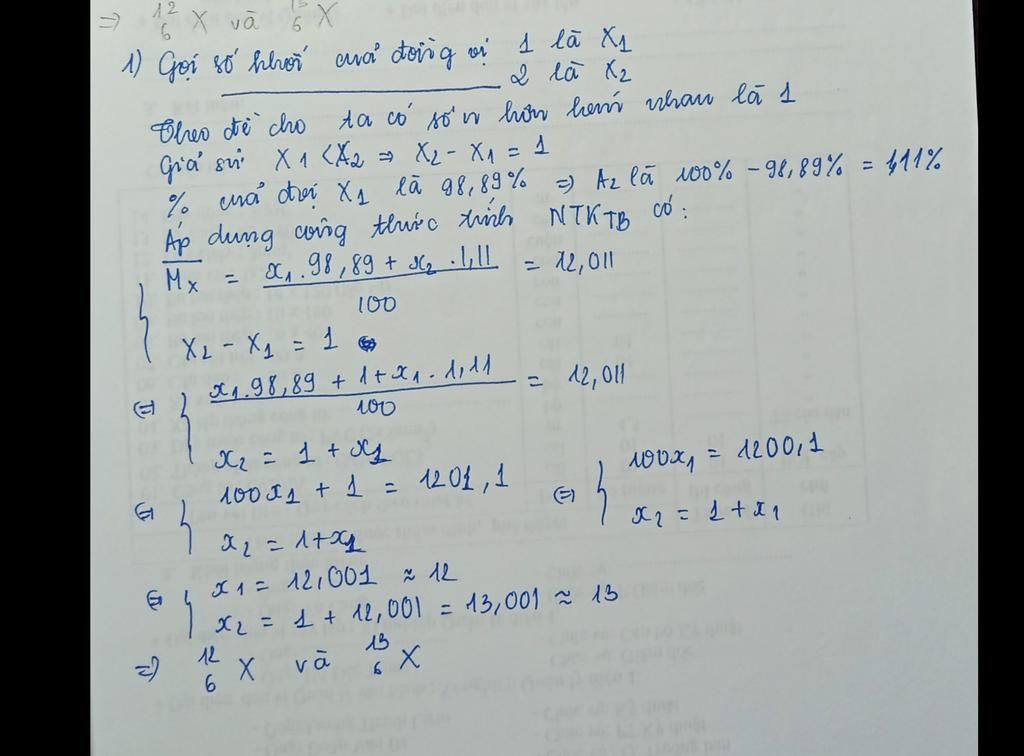 => ¹²₆X và ¹³₆X
1) Gọi số khối của đồng vị 1 là X₁
2 là X₂
Theo đề cho ta có số n hơn kém nhau là 1
Giả sử X₁ < X₂ => X₂ - X₁ = 1
% của đvị X₁ là 98,89% => A₂ là 100% - 98,89% = 1,11%
Áp dụng công thức tính NTKTB có:
M̅x = (x₁.98,89 + x₂.1,11)/100 = 12,011
X₂ - X₁ = 1
⇔ { (x₁.98,89 + 1 + x₁.1,11)/100 = 12,011
x₂ = 1 + x₁
⇔ { 100x₁ + 1 = 1201,1 ⇔ { 100x₁ = 1200,1
x₂ = 1 + x₁ x₂ = 1 + x₁
⇔ { x₁ = 12,001 ≈ 12
x₂ = 1 + 12,001 = 13,001 ≈ 13
=> ¹²₆X và ¹³₆X